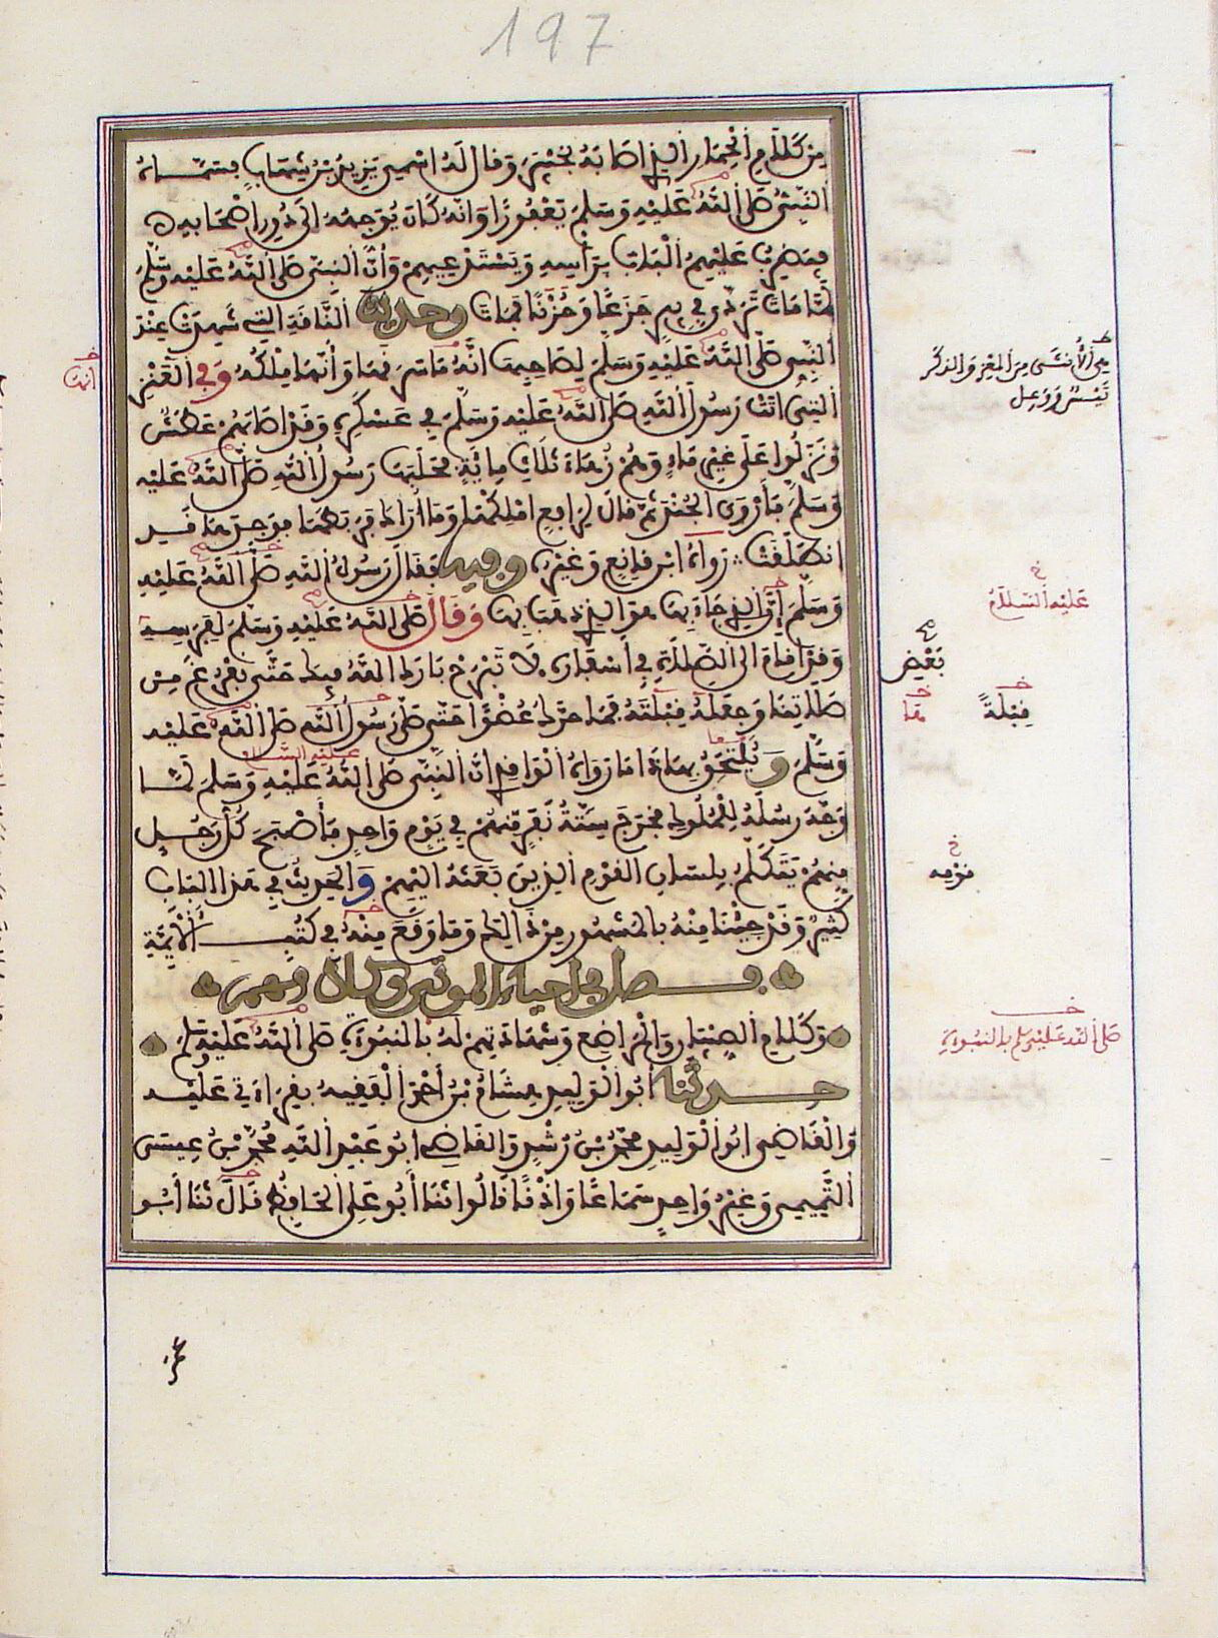 197
مِن كَلَامِ الْحِمَارِ الَّذِي أَصَابَهُ بِخَيْبَرَ وَقَالَ لَهُ اسْمِي يَزِيدُ بْنُ شِهَابٍ فَسَمَّاهُ
النَّبِيُّ صَلَّى اللَّهُ عَلَيْهِ وَسَلَّمَ يَعْفُورًا وَأَنَّهُ كَانَ يُوَجِّهُهُ إِلَى دُورِ أَصْحَابِهِ
فَيَضْرِبُ عَلَيْهِمُ الْبَابَ بِرَأْسِهِ وَيَسْتَدْعِيهِمْ وَأَنَّ النَّبِيَّ صَلَّى اللَّهُ عَلَيْهِ وَسَلَّمَ
لَمَّا مَاتَ تَرَدَّى فِي بِيرٍ جَزَعًا وَحُزْنًا فَمَاتَ وحديث النَّاقَةِ الَّتِي شَهِدَتْ عِنْدَ
النَّبِي صَلَّى اللَّهُ عَلَيْهِ وَسَلَّمَ لِصَاحِبِهَا أَنَّهُ مَا سَرَقَهَا وَأَنَّهَا مِلْكُهُ وَفِي الْعَنْزِ
الَّتِي أَتَتْ رَسُولَ اللَّهِ صَلَّى اللَّهُ عَلَيْهِ وَسَلَّمَ فِي عَسْكَرِهِ وَقَدْ أَصَابَهُمْ عَطَشٌ
وَنَزَلُوا عَلَى غَيْرِ مَاءٍ وَهُمْ زُهَاءَ ثَلَاثِ مِائَةٍ فَحَلَبَهَا رَسُولُ اللَّهِ صَلَّى اللَّهُ عَلَيْهِ
وَسَلَّمَ فَأَرْوَى الْجُنْدَ ثُمَّ قَالَ لِرَافِعٍ امْلِكْهَا وَمَا أَرَاكَ فَرَبَطَهَا فَوَجَدَهَا قَدِ
انْطَلَقَتْ رَوَاهُ ابْنُ قَانِعٍ وَغَيْرُهُ وفيه فَقَالَ رَسُولُ اللَّهِ صَلَّى اللَّهُ عَلَيْهِ
وَسَلَّمَ إِنَّ الَّذِي جَاءَ بِهَا هُوَ الَّذِي ذَهَبَ بِهَا وَقَالَ صَلَّى اللَّهُ عَلَيْهِ وَسَلَّمَ لِفَرَسِهِ
وَقَدْ قَامَ إِلَى الصَّلَاةِ فِي أَسْفَارِهِ لَا تَبْرَحْ بَارَكَ اللَّهُ فِيكَ حَتَّى نَفْرُغَ مِنْ
صَلَاتِنَا وَجَعَلَهُ قِبْلَتَهُ فَمَا حَرَّكَ عُضْوًا حَتَّى صَلَّى رَسُولُ اللَّهِ صَلَّى اللَّهُ عَلَيْهِ
وَسَلَّمَ وَيُلْتَحَقُ بِهَذَا مَا رَوَاهُ الْوَاقِدِيُّ أَنَّ النَّبِيَّ صَلَّى اللَّهُ عَلَيْهِ وَسَلَّمَ لَمَّا
وَجَّهَ رُسُلَهُ لِلْمُلُوكِ فَخَرَجَ سِتَّةُ نَفَرٍ مِنْهُمْ فِي يَوْمٍ وَاحِدٍ فَأَصْبَحَ كُلُّ رَجُلٍ
مِنْهُمْ يَتَكَلَّمُ بِلِسَانِ الْقَوْمِ الَّذِينَ بَعَثَهُ إِلَيْهِمْ وَالْحَدِيثُ فِي هَذَا الْبَابِ
كَثِيرٌ وَقَدْ جِئْنَا مِنْهُ بِالْمَشْهُورِ مِنْ ذَلِكَ وَمَا وَقَعَ مِنْهُ فِي كُتُبِ الْأَئِمَّةِ
فصل في إحياء الموتى وكلامهم
وَكَلَامِ الصِّبْيَانِ وَالْمَرَاضِعِ وَشَهَادَتِهِمْ لَهُ بِالنُّبُوَّةِ صَلَّى اللَّهُ عَلَيْهِ وَسَلَّمَ
حدثنا أَبُو الْوَلِيدِ هِشَامُ بْنُ أَحْمَدَ الْفَقِيهُ بِقِرَاءَتِي عَلَيْهِ
وَالْقَاضِي أَبُو الْوَلِيدِ مُحَمَّدُ بْنُ رُشْدٍ وَالْقَاضِي أَبُو عَبْدِ اللَّهِ مُحَمَّدُ بْنُ عِيسَى
التَّمِيمِي وَغَيْرُ وَاحِدٍ سَمَاعًا وَإِذْنًا قَالُوا ثَنَا أَبُو عَلِي الْحَافِظُ قَالَ ثَنَا أَبُو
هي الأُنثَى مِنَ المَعْزِ وَالذكَر
تَيْسٌ وَوَعِل
عَلَيْهِ السَّلَامُ
بَعْضِ
قِبْلَةً
قومه
صَلَّى اللَّهُ عَلَيْهِ وَسَلَّمَ بِالنُّبُوءَةِ
عَلَيْهِ السَّلَام